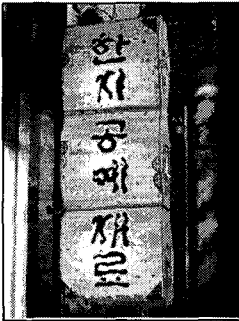 한지
공예
재료